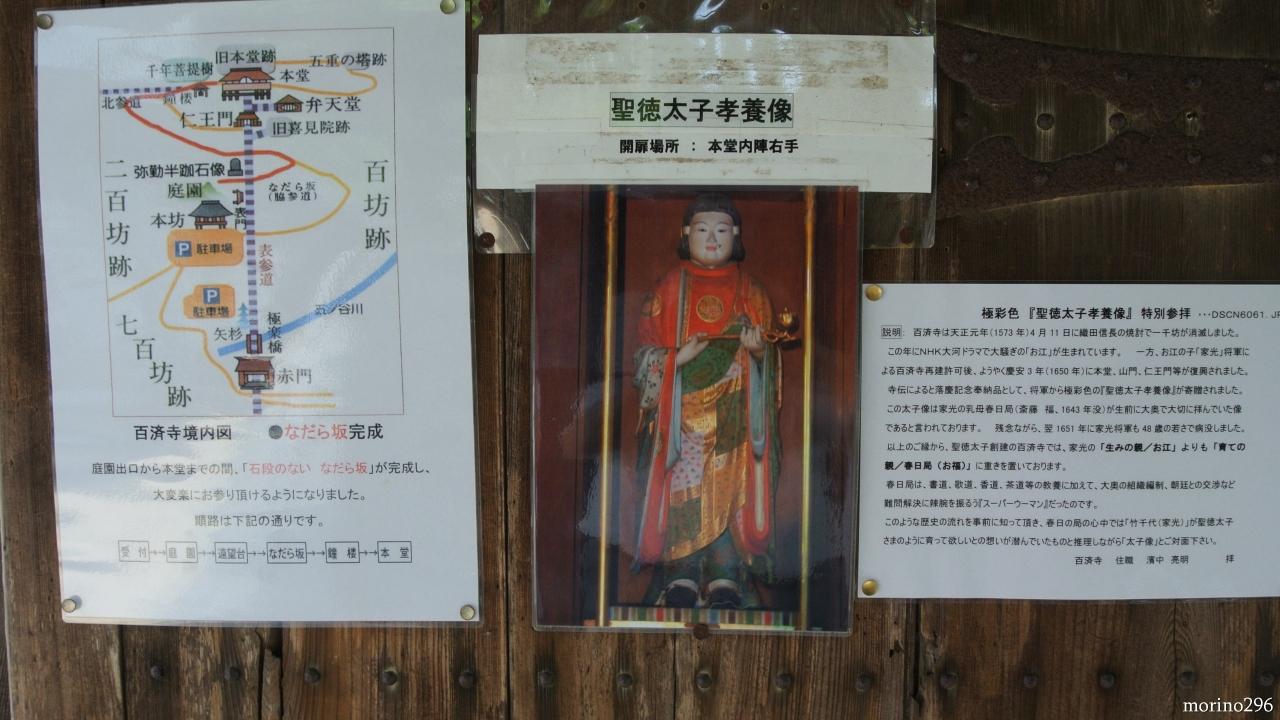 旧本堂跡
五重の塔跡
千年菩提樹
本堂
北参道
鐘楼
弁天堂
仁王門
旧喜見院跡
弥勒半跏石像
二百坊跡
百坊跡
庭園
なだら坂
(脇参道)
本坊
表門
P 駐車場
表参道
P
駐車場
五ノ谷川
七百坊跡
矢杉
極楽橋
赤門
百済寺境内図 ●なだら坂完成
庭園出口から本堂までの間、「石段のない なだら坂」が完成し、
大変楽にお参り頂けるようになりました。
順路は下記の通りです。
受付→庭園→遠望台→なだら坂→鐘楼→本堂
聖徳太子孝養像
開扉場所 : 本堂内陣右手
極彩色『聖徳太子孝養像』特別参拝 ・・・DSCN6061. JP
説明: 百済寺は天正元年(1573年)4月11日に織田信長の焼討で一千坊が消滅しました。
この年にNHK大河ドラマで大騒ぎの「お江」が生まれています。 一方、お江の子「家光」将軍に
よる百済寺再建許可後、ようやく慶安3年(1650年)に本堂、山門、仁王門等が復興されました。
寺伝によると落慶記念奉納品として、将軍から極彩色の『聖徳太子孝養像』が寄贈されました。
この太子像は家光の乳母春日局(斎藤 福、1643年没)が生前に大奥で大切に拝んでいた像
であると言われております。 残念ながら、翌1651年に家光将軍も48歳の若さで病没しました。
以上のご縁から、聖徳太子創建の百済寺では、家光の「生みの親/お江」よりも「育ての
親/春日局(お福)」に重きを置いております。
春日局は、書道、歌道、香道、茶道等の教養に加えて、大奥の組織編制、朝廷との交渉など
難問解決に辣腕を振るう『スーパーウーマン』だったのです。
このような歴史の流れを事前に知って頂き、春日の局の心中では「竹千代(家光)」が聖徳太子
さまのように育って欲しいとの想いが潜んでいたものと推理しながら「太子像」とご対面下さい。
百済寺 住職 濱中 亮明 拝
morino296